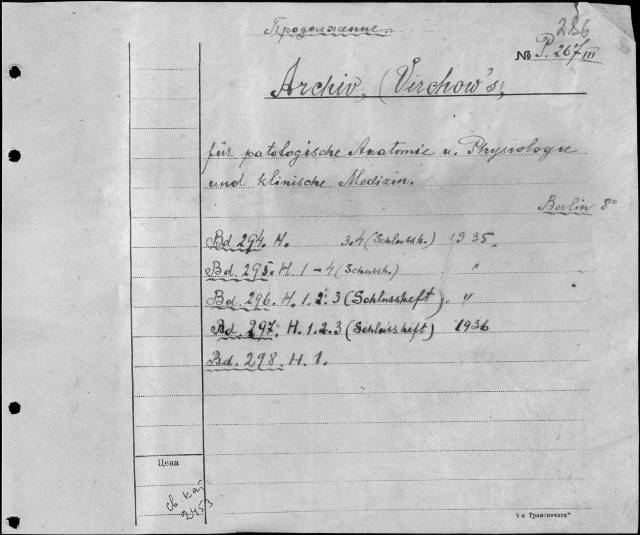 Продолжение.
286
№ P. 267 III
Archiv, (Virchow's,
für patologische Anatomie u. Physiologie
und klinische Medizin.
Berlin 8°
Bd. 294. H. 3.4 (Schlussh.) 1935.
Bd. 295. H. 1-4 (Schussh.) "
Bd. 296. H. 1. 2. 3 (Schlussheft). "
Bd. 297. H. 1. 2. 3 (Schlussheft) 1936
Bd. 298. H. 1.
Цена
св. кат
2453
"я Транспечати"